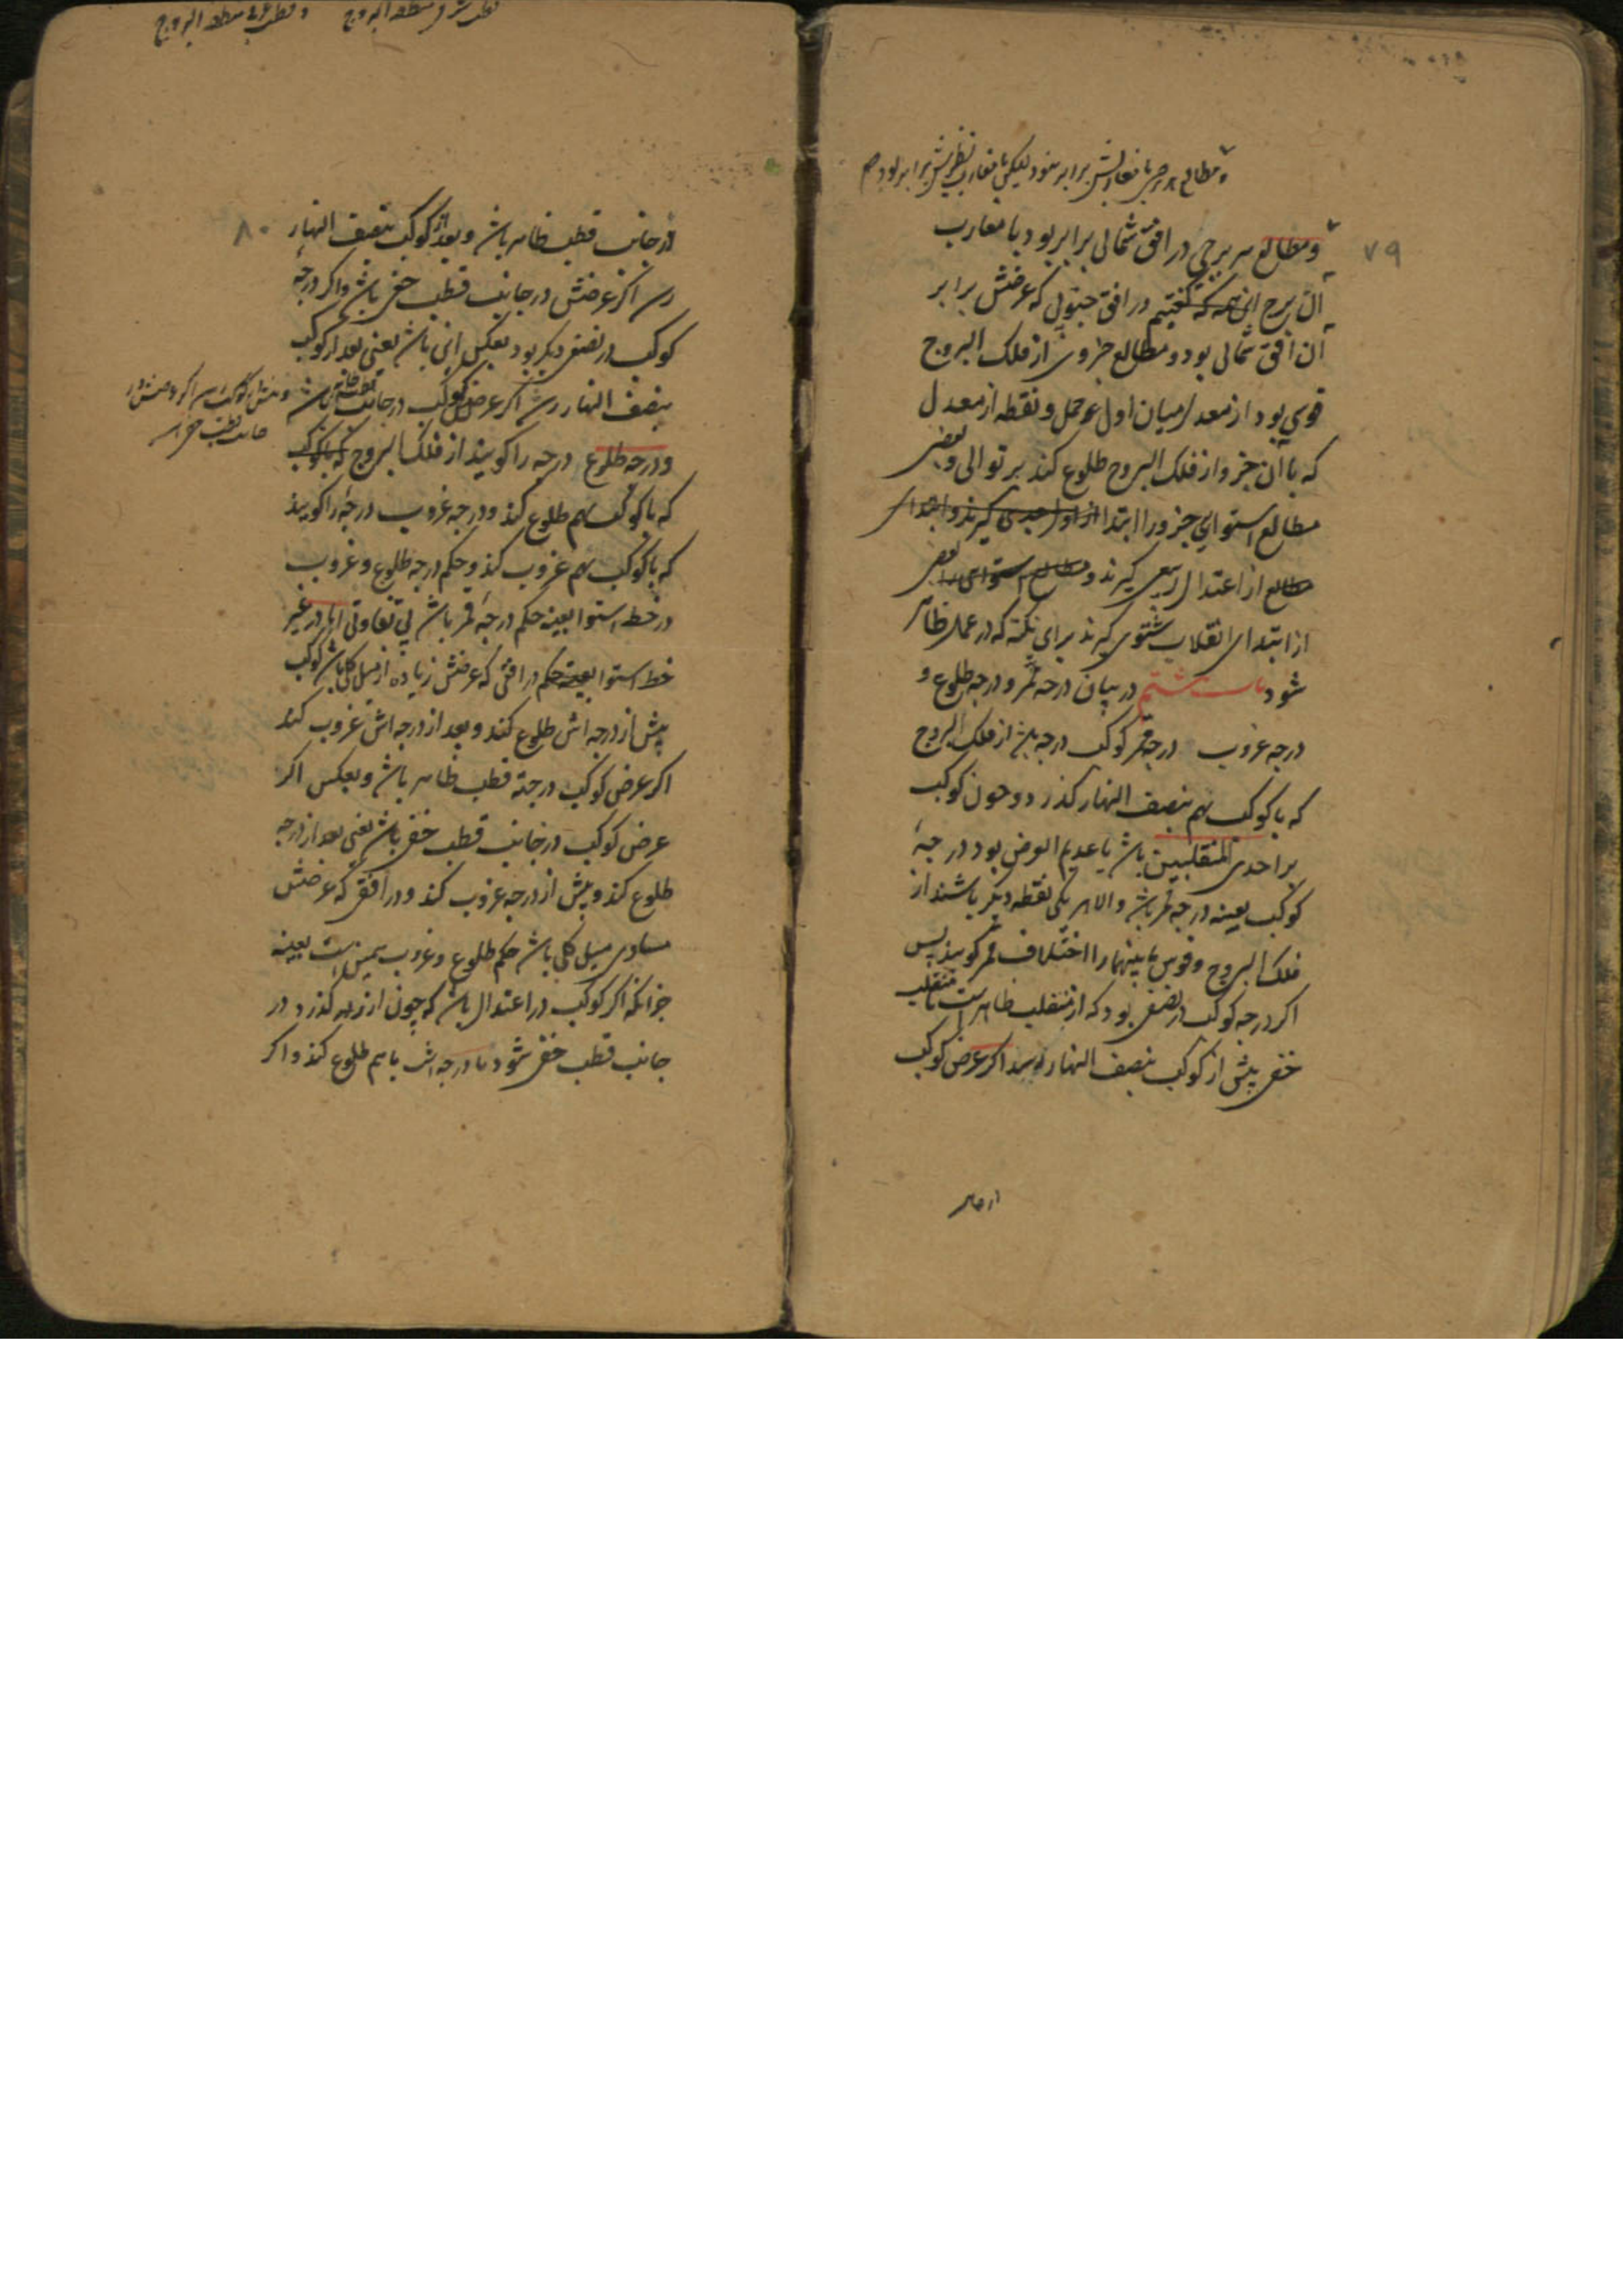 و مطالع هر جزء با مغاربش برابر نبود لیکن با مغارب نظیرش برابر بود
۷۹
و مطالع هر برجی در افق شمالی برابر بود با مغارب
آن برج این همه که گفتیم در افق جنوبی که عرضش برابر
آن افق شمالی بود و مطالع جزوی از فلک البروج
قوسی بود از معدل میان اول حمل و نقطه از معدل
که با آن جزو از فلک البروج طلوع کند بر توالی و بعضی
مطالع استوایی جزو را ابتدا از اول جدی گیرند و ابتدای
مطالع از اعتدال ربیعی گیرند و مطالع استوایی را بعضی
از ابتدای انقلاب شتوی گیرند برای نکته که در عمل ظاهر
شود باب ششم در بیان درجه ممر و درجه طلوع و
درجه غروب درجه ممر کوکب درجه باشد از فلک البروج
که با کوکب بهم بنصف النهار گذرد و چون کوکب
بر احدی المنقلبین باشد یا عدیم العرض بود درجهٔ
کوکب بعینه درجه ممر باشد والا هر یکی نقطه دیگر باشند از
فلک البروج و قوس مابینهما را اختلاف ممر گویند پس
اگر درجه کوکب در نصفی بود که از منقلب ظاهر است تا منقلب
خفی پیش از کوکب بنصف النهار رسد اگر عرض کوکب
از جانب
قطب شرقی منطقه البروج و قطب غربی منطقه البروج
۸۰
از جانب قطب ظاهر باشد و بعد از کوکب بنصف النهار
رسد اگر عرضش در جانب قطب خفی باشد و اگر درجهٔ
کوکب در نصف دیگر بود بعکس این باشد یعنی بعد از کوکب
بنصف النهار رسد اگر عرض کوکب در جانب قطب ظاهر باشد
و پیش از کوکب رسد اگر عرضش در
جانب قطب خفی است
و درجه طلوع درجه را گویند از فلک البروج که با کوکب
که با کوکب بهم طلوع کند و درجه غروب درجهٔ را گویند
که با کوکب بهم غروب کند و حکم درجه طلوع و غروب
در خط استوا بعینه حکم درجهٔ ممر باشد بی تفاوتی اما در غیر
خط استوا بعینه حکم در افقی که عرضش زیاده از میل کلی باشد کوکب
پیش از درجه اش طلوع کند و بعد از درجه اش غروب کند
اگر عرض کوکب در جهة قطب ظاهر باشد و بعکس اگر
عرض کوکب در جانب قطب خفی باشد یعنی بعد از درجه
طلوع کند و پیش از درجه غروب کند و در افقی که عرضش
مساوی میل کلی باشد حکم طلوع و غروب همین است بعینه
جز آنکه اگر کوکب در اعتدال باشد که چون از گذرد در
جانب قطب خفی شود با درجه اش باهم طلوع کند و اگر